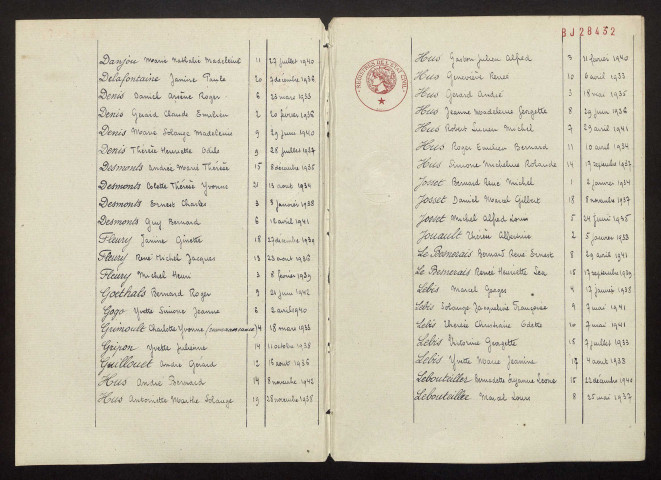 Danjou Marie Nathalie Madeleine 11 27 juillet 1940
Delafontaine Janine Paule 20 3 décembre 1936
Denis Daniel Arsène Roger 6 23 mars 1933
Denis Gérard Claude Emilien 2 20 février 1936
Denis Marie Solange Madeleine 9 29 juin 1940
Denis Thérèse Henriette Odile 9 28 juillet 1937
Desmonts Andrée Marie Thérèse 15 8 décembre 1935
Desmonts Colette Thérèse Yvonne 21 13 août 1934
Desmonts Ernest Charles 3 3 janvier 1938
Desmonts Guy Bernard 6 12 avril 1941
Fleury Janine Ginette 18 27 décembre 1939
Fleury René Michel Jacques 13 23 août 1936
Fleury Michel Henri 3 8 février 1939
Goethals Bernard Roger 9 21 juin 1942
Gogo Yvette Simone Jeanne 6 2 avril 1940
Grimoult Charlotte Yvonne 4 18 mars 1933
Gripon Yvette Julienne 14 11 octobre 1938
Guillouet André Gérard 12 16 août 1936
Hus André Bernard 14 8 novembre 1942
Hus Antoinette Marthe Solange 19 28 novembre 1938
BJ2B432
REGISTRES DE L'ETAT CIVIL
Hus Gaston Julien Alfred 3 21 février 1940
Hus Geneviève Renée 10 6 avril 1933
Hus Gérard André 3 18 mai 1935
Hus Jeanne Madeleine Georgette 8 29 juin 1936
Hus Robert Lucien Michel 7 29 avril 1941
Hus Roger Emilien Bernard 11 10 avril 1934
Hus Simone Micheline Rolande 14 19 septembre 1937
Josset Bernard René Michel 1 2 janvier 1934
Josset Daniel Marcel Gilbert 18 8 novembre 1937
Josset Michel Alfred Louis 5 24 juin 1935
Jouault Thérèse Albertine 2 5 janvier 1933
Le Besnerais Bernard René Ernest 8 29 avril 1942
Le Besnerais Renée Henriette Léa 15 17 septembre 1939
Lebis Marcel Georges 4 17 janvier 1938
Lebis Solange Jacqueline Françoise 9 7 mai 1941
Lebis Thérèse Christiane Odette 10 7 mai 1941
Lebis Victorine Georgette 18 7 juillet 1933
Lebis Yvette Marie Jeanine 17 4 août 1938
Lebouteiller Bernadette Lyanne Léone 15 22 décembre 1940
Lebouteiller Marcel Louis 8 25 mai 1937